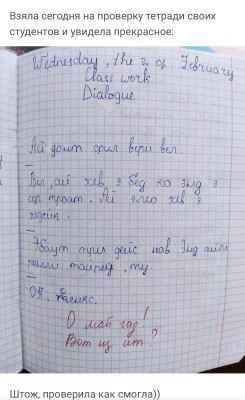 Взяла сегодня на проверку тетради своих
студентов и увидела прекрасное:
Wednesday, the 2 of February
Class work
Dialogue
Ай донт фил вери вел.
—
Вел, ай хев э бед ко энд э
сор троат. Ай элсо хев э
хедейк.
—
Эбаут три дейс нав. Энд айм
риалли тайред, ту.
—
Ок, фенкс.
О май гад!
Вот из ит?
Штож, проверила как смогла))